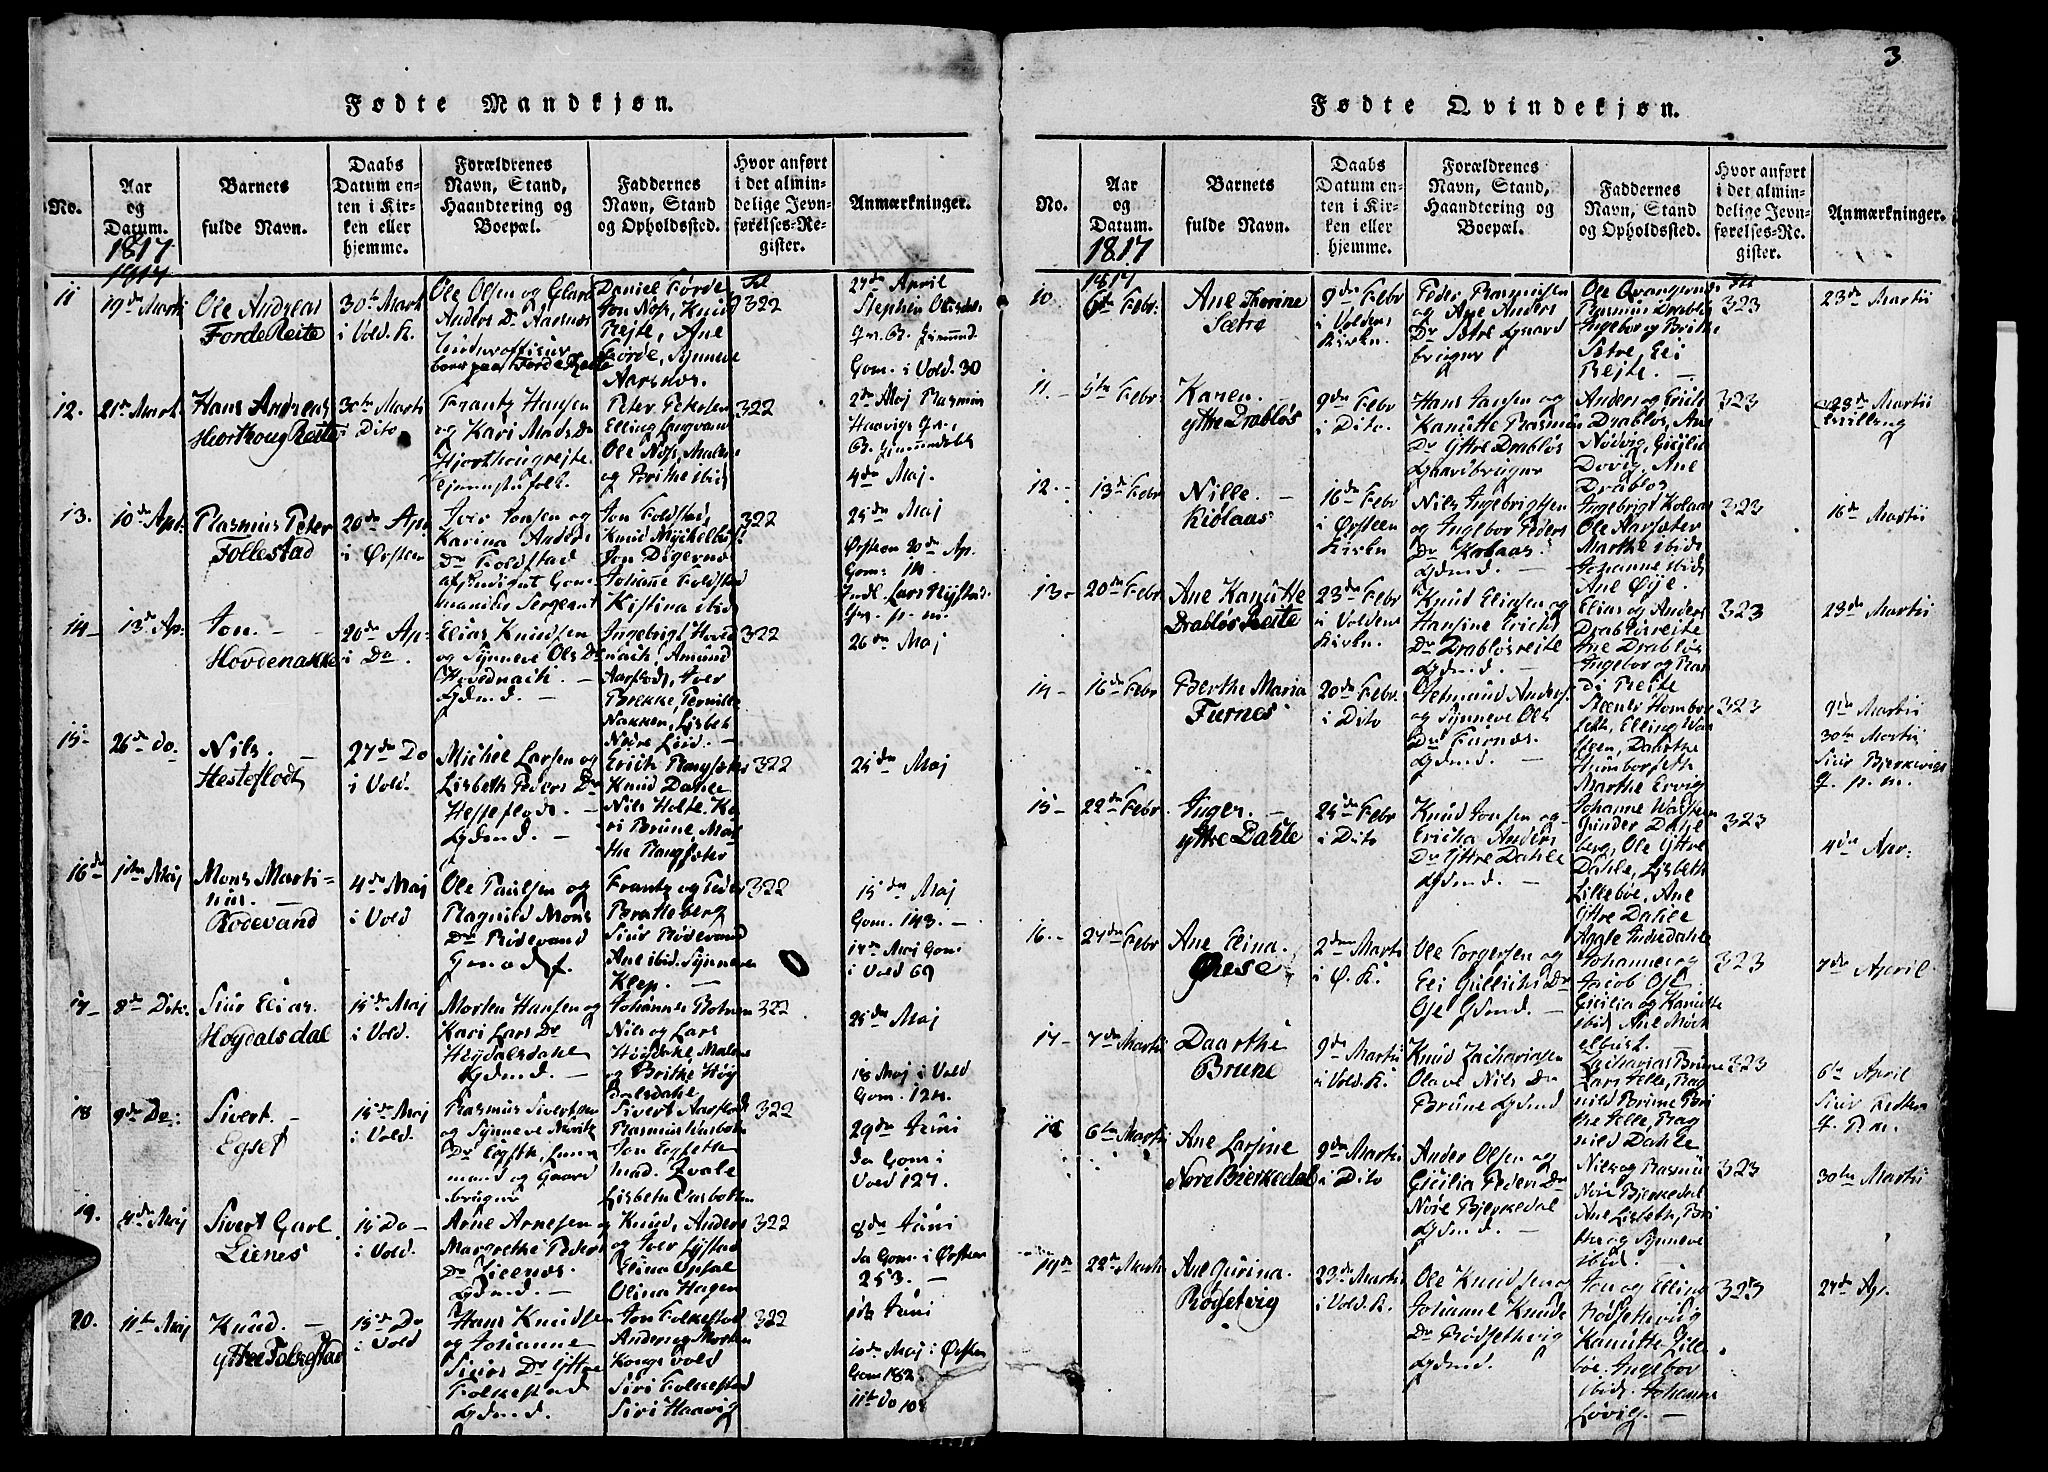 3
Fødte Mandkjøn.
No.
Aar
og
Datum.
1817
Barnets
fulde Navn.
Daabs
Datum en-
ten i Kir-
ken eller
hjemme.
Forældrenes
Navn, Stand,
Haandtering og
Boepæl.
Faddernes
Navn, Stand
og Opholdssted.
Hvor anført
i det almin-
delige Jevn-
førelses-Re-
gister.
Anmærkninger.
11
19de Marti
Ole Andreas
Forde Reite
30te Mart
i Vold. K.
Ole Olsen og
Anders Dr Aarsnes
Daniel Førde
Jon Noss, Knud
Rejte, Ane
Førde, Synneve
Aarsnes.
322
27de April
Gom. i Vold. 30
12.
21de Mart
Hans Andreas
Hiorthoug Reite
30te Marti
i Dito
Frantz Hansen
og Kari Mads Dr
Hjorthougrejte
Peter Petersen
Elling
Ole Noss, Malene
og Brithe ibid
322
2de Maj Rasmus
4de Maj.
13.
10de Apr.
Rasmus Peter
Follestad
20de Apr
i Ørsten
Iver Jonsen og
Karina Anders
Dr Foldstad
Sergeant
Jon Foldstad,
Knud Myckelbust
Jon Digernes
Johanne Foldstad
Kistina ibid
322
25de Maj
Ørsten 20de Ap.
14
13de Ap:
Jon.
Hovdenakke
20de Ap:
i Do.
Elias Knudsen
og Synneve Ols Dr
Hovednach
Gdmd.
Ingebrigt Hovde
nach, Amund
Aarflodt, Iver
Brekke, Pernille
Nakken, Lisbet
Nedre Leid.
322
26de Maj
15
26de do.
Nils.
Hesteflodt
27de Do
i Vold.
Michel Larsen og
Lisbeth Peders Dr
Hesteflodt.
Gdmd.
Erich Rangsæter
Knud Dahle
Nils Holte. Ka
ri Brune, Mar
the Rangsæter
322
25de Maj
16de
1ste Maj
Mons Marti-
nus.
Rødevand
4de Maj
i Vold
Ole Paulsen og
Ragnild Mons
Dr Rødevand
Frantz og Peder
Bratteberg
Siur Rødevand
Ane ibid. Synneve
Klep.
322
15de Maj
Gom. 143.
17de Maj Gom
i Vold 69
17
8de Dito.
Siur Elias.
Høydalsdal
15de Maj
i Vold.
Morten Hansen og
Kari Lars Dr
Høydalsdahl
Gdmd.
Johannes Botnen
Nils og Lars
og Brithe Høy
dalsdahle
322
25de Maj
18 Maj i Vold
Gom. 124.
18
9de Do:
Sivert.
Egset
15de Maj
i Vold.
Rasmus Sivertsen
og Synneve
mand og Gaard
bruger
Sivert Aarflod
Rasmus Wasbotn
Jon Egseth
Lisbeth Wasbotten
322
29de Juni
da Gom i
Vold 127.
19.
4de Maj
Sivert Carl.
Lienes
15 Do
i Vold.
Arne Arnesen og
Margrethe Peders
Dr Lienes.
Gdmd.
Knud, Anders
og Iver
Elina Opsal
Olina Hagen
322
8de Juni
da Gom. i Ørsten
253.
20.
11te Maj
Knud.
ytre Folkestad
15de Do
i Vold
Hans Knudsen
og Johanne
Siurs Dr Yttre
Folkestad
Gdmd.
Jon Folkestad
Anders og Morten
Kongsvold
Siri Folkestad
Siri Haavig
322
Juni
10de Maj i Ørsten
Gom 182
11te do 108
Fødte Qvindekjøn.
No.
Aar
og
Datum.
1817
Barnets
fulde Navn.
Daabs
Datum en-
ten i Kir-
ken eller
hjemme.
Forældrenes
Navn, Stand,
Haandtering og
Boepæl.
Faddernes
Navn, Stand
og Opholdssted.
Hvor anført
i det almin-
delige Jevn-
førelses-Re-
gister.
Anmærkninger.
1817
10
6de Febr:
Ane Thorine
Sætre
9de Febr
i Voldens
Kirke.
Peder Rasmusen
og Ane Anders
Dr Sætre Gaard
bruger
Rasmus Drabløs
Ingebor og Brithe
Sætre, Eli
Rejte.
323
23de Martii
11.
5te Febr
Karen.
yttre Drabløs
9de Febr
i Dito.
Hans Hansen og
Kanutte Rasmus
Dr Yttre Drabløs
Gaardbruger
Anders og Erich
Drabløs, Ane
Nødvig, Cicilia
Dovig, Ane
Drabløs
323
23de Martii
12.
13de Febr
Nille.
Kiølaas
16de Febr
i Ørsteen
Kirke
Nils Ingebrigtsen
og Ingebor Peders
Dr Kolaas.
Gdmd.
Ingebrigt Kolaas
Ole Aarsæter
Marthe ibid
Johanne ibid
Ane Øye.
323
16de Martii
13
20de Febr
Ane Kanutte
Drabløs Reite
23de Febr
i Volden
Kirke.
Knud Eliasen og
Hansine Erichs
Dr Drabløsreite
Gdmd.
Elias og Anders
Drabløsreite
Ane Drabløs
Ingebor og Ran
di Reite
323
23de Martii
14
16de Febr
Berthe Maria
Furnes
20de Febr
i Dito
Osmund Anders.
og Synneve Ols
Dr Furnes.
Gdmd.
Steener Homber
seth, Elling Wad
steen, Daarthe
Humberseth
Marthe Ervig
323
9de Martii
30te Martii
Siur Bjerkevigs
q. p. m.
15
22de Febr
Inger.
yttre Dahle
25de Febr
i Dito
Knud Jonsen og
Ericha Anders
Dr Yttre Dahle
Gdmd.
Johanne Wassteen
Gunder Dahle
berg, Ole Yttre
Dahle, Lisbeth
Lillebøe, Ane
Yttre Dahle
323
4de Apr:
16.
27de Febr
Ane Elina.
Øiese
2den Marti
i Ø. K.
Ole Torgersen og
Eli Gullichs Dr
Ose Gdmd.
Aagle Indredahle
Johannes og
Jacob Ose
Cicilia og Kanutte
ibid. Ane Møck
elbust.
323
7de April.
17
7de Martii
Daarthe
Brune
9de Martii
i Vold. K.
Knud Zachariasen
Olave Nils Dr
Brune Gdmd
Zacharias Brune
Lars Aelle, Rag
nild Brune Bri
the Aelle, Rag
nild Dahle
323
6te April
18
6te Martii
Ane Larsine
Nøre Bierkedal
9de Martii
i Dito
Anders Olsen og
Cicilia Peders Dr
Nøre Bjerkedal
Gdmd.
Nils og Rasmus
Nøre Bjerkedal
Ane Lisbeth, Bri
the og Synneve
ibid.
323
30te Martii
19de
22de Marti
Ane Gurina.
Rødsetvig
23de Martii
i Vold. K.
Ole Knudsen og
Johanne Knuds
Dr Rødsethvig
Gdmd.
Jon og Elling
Rødsethvig
Kanutte Lille
bøe. Ingebor
ibid. Johanne
Løvig.
323
27de Ap.